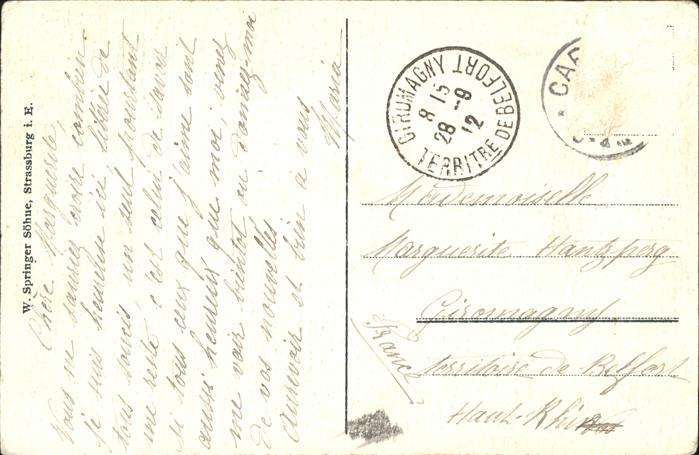 W. Springer Söhne, Strassburg i. E.
Chère Marguerite,
Vous ne sauriez croire combien
je suis heureuse ici libérée de
tous soucis un seul pourtant
me reste c'est celui de savoir
si tous ceux que j'aime sont
aussi heureux que moi, venez
me voir bientôt ou donnez-moi
de vos nouvelles
Aurevoir et bien à vous
Maria
GIROMAGNY
8 15
28 -9
12
TERRITRE DE BELFORT
Mademoiselle
Marguerite Hantzperg
Giromagny
Territoire de Belfort
Haut-Rhin
France